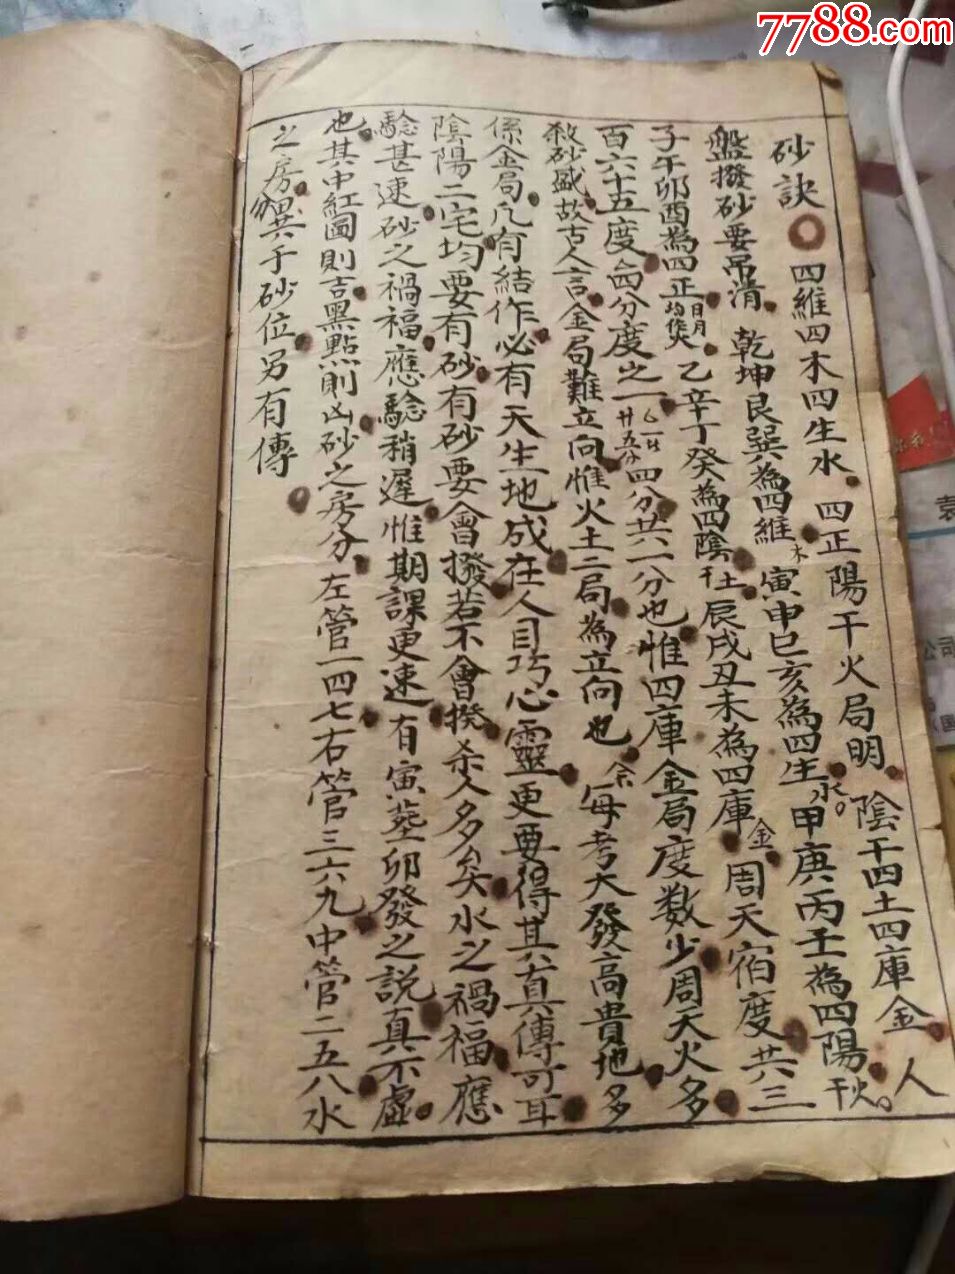 7788.com
砂訣 四維四木四生水 四正陽干火局明 陰干四土四庫金 人
盤撥砂要吊清 乾坤艮巽為四維木 寅申巳亥為四生水 甲庚丙壬為四陽干火
子午卯酉為四正日月均作火 乙辛丁癸為四陰干土 辰戌丑未為四庫金 周天宿度共三
百六十五度 分度之一 廿五分 四分共一分也 惟四庫金局度数少周天火多
殺砂盛故古人言金局難立向惟火土二局為立向也 余每考大發高貴地多
係金局凡有結作必有天生地成在人目巧心靈更要得其真傳可耳
陰陽二宅均要有砂有砂要會撥若不會撥杀人多多矣水之禍福應
驗甚速砂之禍福應驗稍遲惟期課更速有寅葬卯發之説真不虛
也其中紅圖則吉黑點則凶砂之房分左管一四七右管三六九中管二五八水
之房分異于砂位另有傳
袁
公司